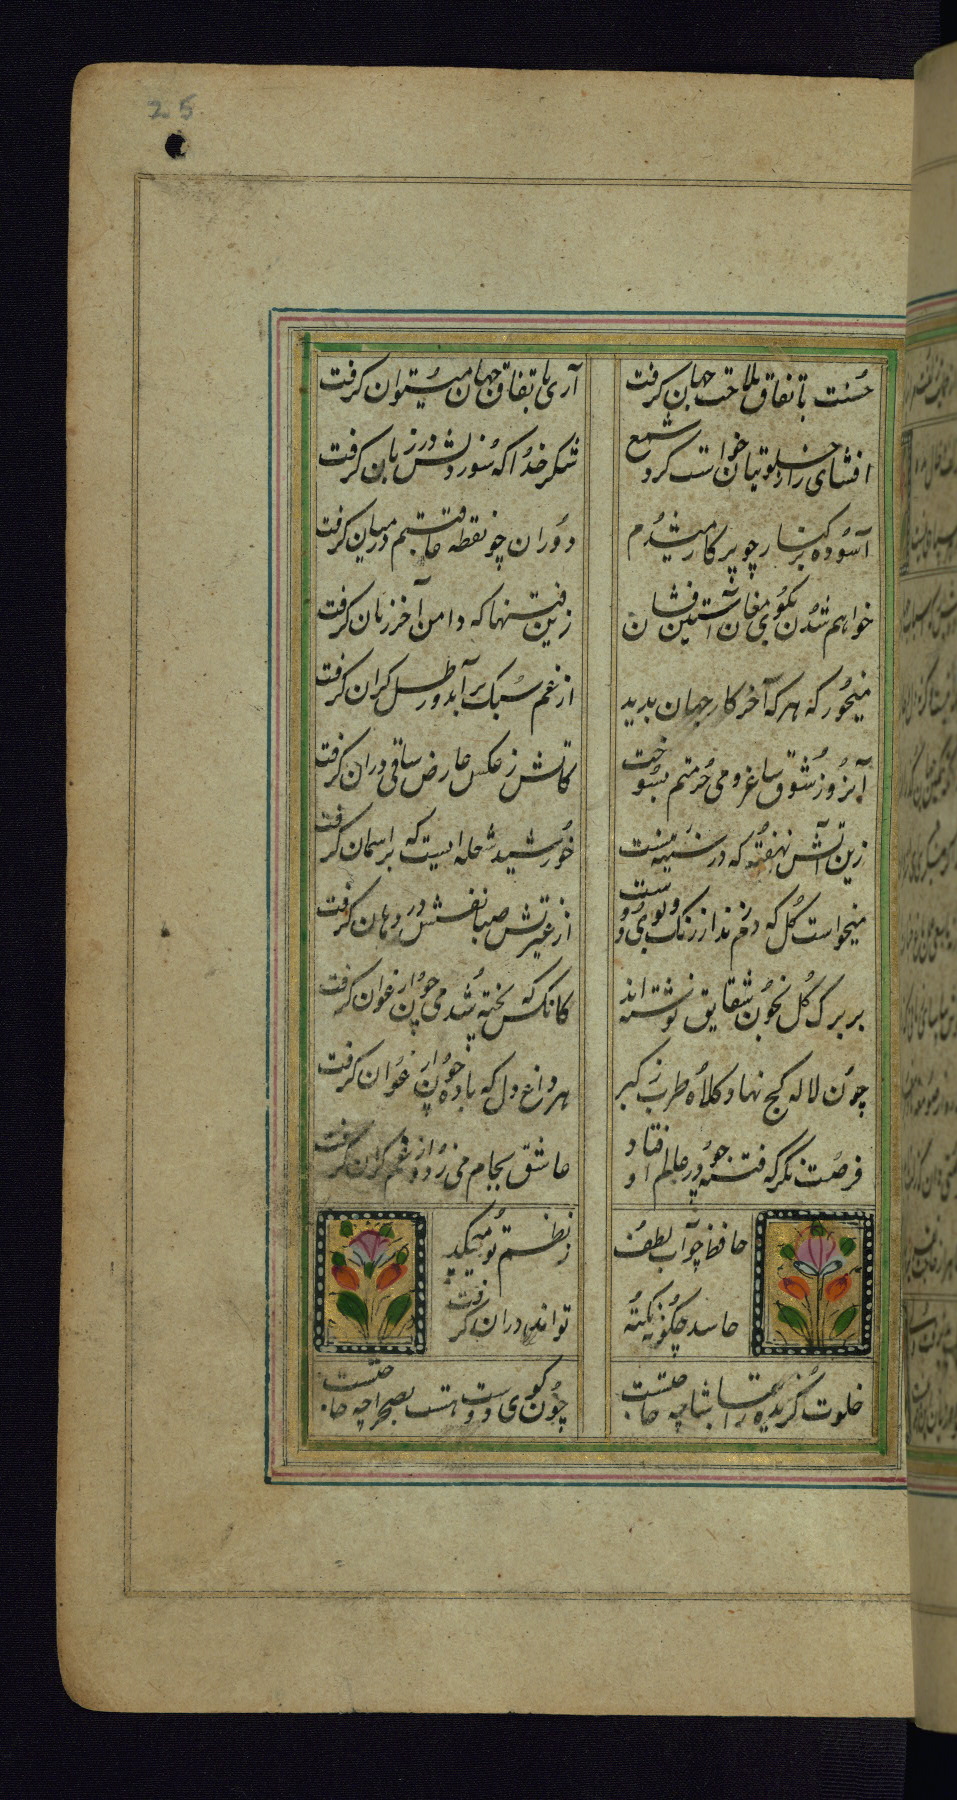 25
حسنت باتفاق ملاحت جهان گرفت آری باتفاق جهان میتوان گرفت
افشای راز خلوتیان خواست کرد شمع شکر خدا که سوز دلش در زبان گرفت
آسوده بر کنار چو پرکار میشدم دوران چو نقطه عاقبتم در میان گرفت
خواهم شدن بکوی مغان آستین فشان زین فتنها که دامن آخر زمان گرفت
میخور که هر که آخر کار جهان بدید از غم سبک برآمد و رطل گران گرفت
آنروز شوق ساغر و می خرمتم بسوخت کاتش ز عکس عارض ساقی دران گرفت
زین آتش نهفته که در سینه منست خورشید شعله ایست که بر اسمان گرفت
میخواست گل که دم زند از رنگ و بوی دوست از غیرتش صبا نفسش در دهان گرفت
بر برک گل بخون شقایق نوشته اند کانکس که پخته شد می چو ارغوان گرفت
چون لاله کج نهاد کلاه طرب ز کبر هر داغ دل که باده چون ارغوان گرفت
فرصت نگر که فتنه چو در عالم اوفتاد عاشق بجام می زد و از غم کران گرفت
حافظ چو آب لطف ز نظم تو میچکد
حاسد چگونه نکته تواند دران گرفت
خلوت گزیده را بتماشا چه حاجتست چون کوی دوست هست بصحرا چه حاجتست